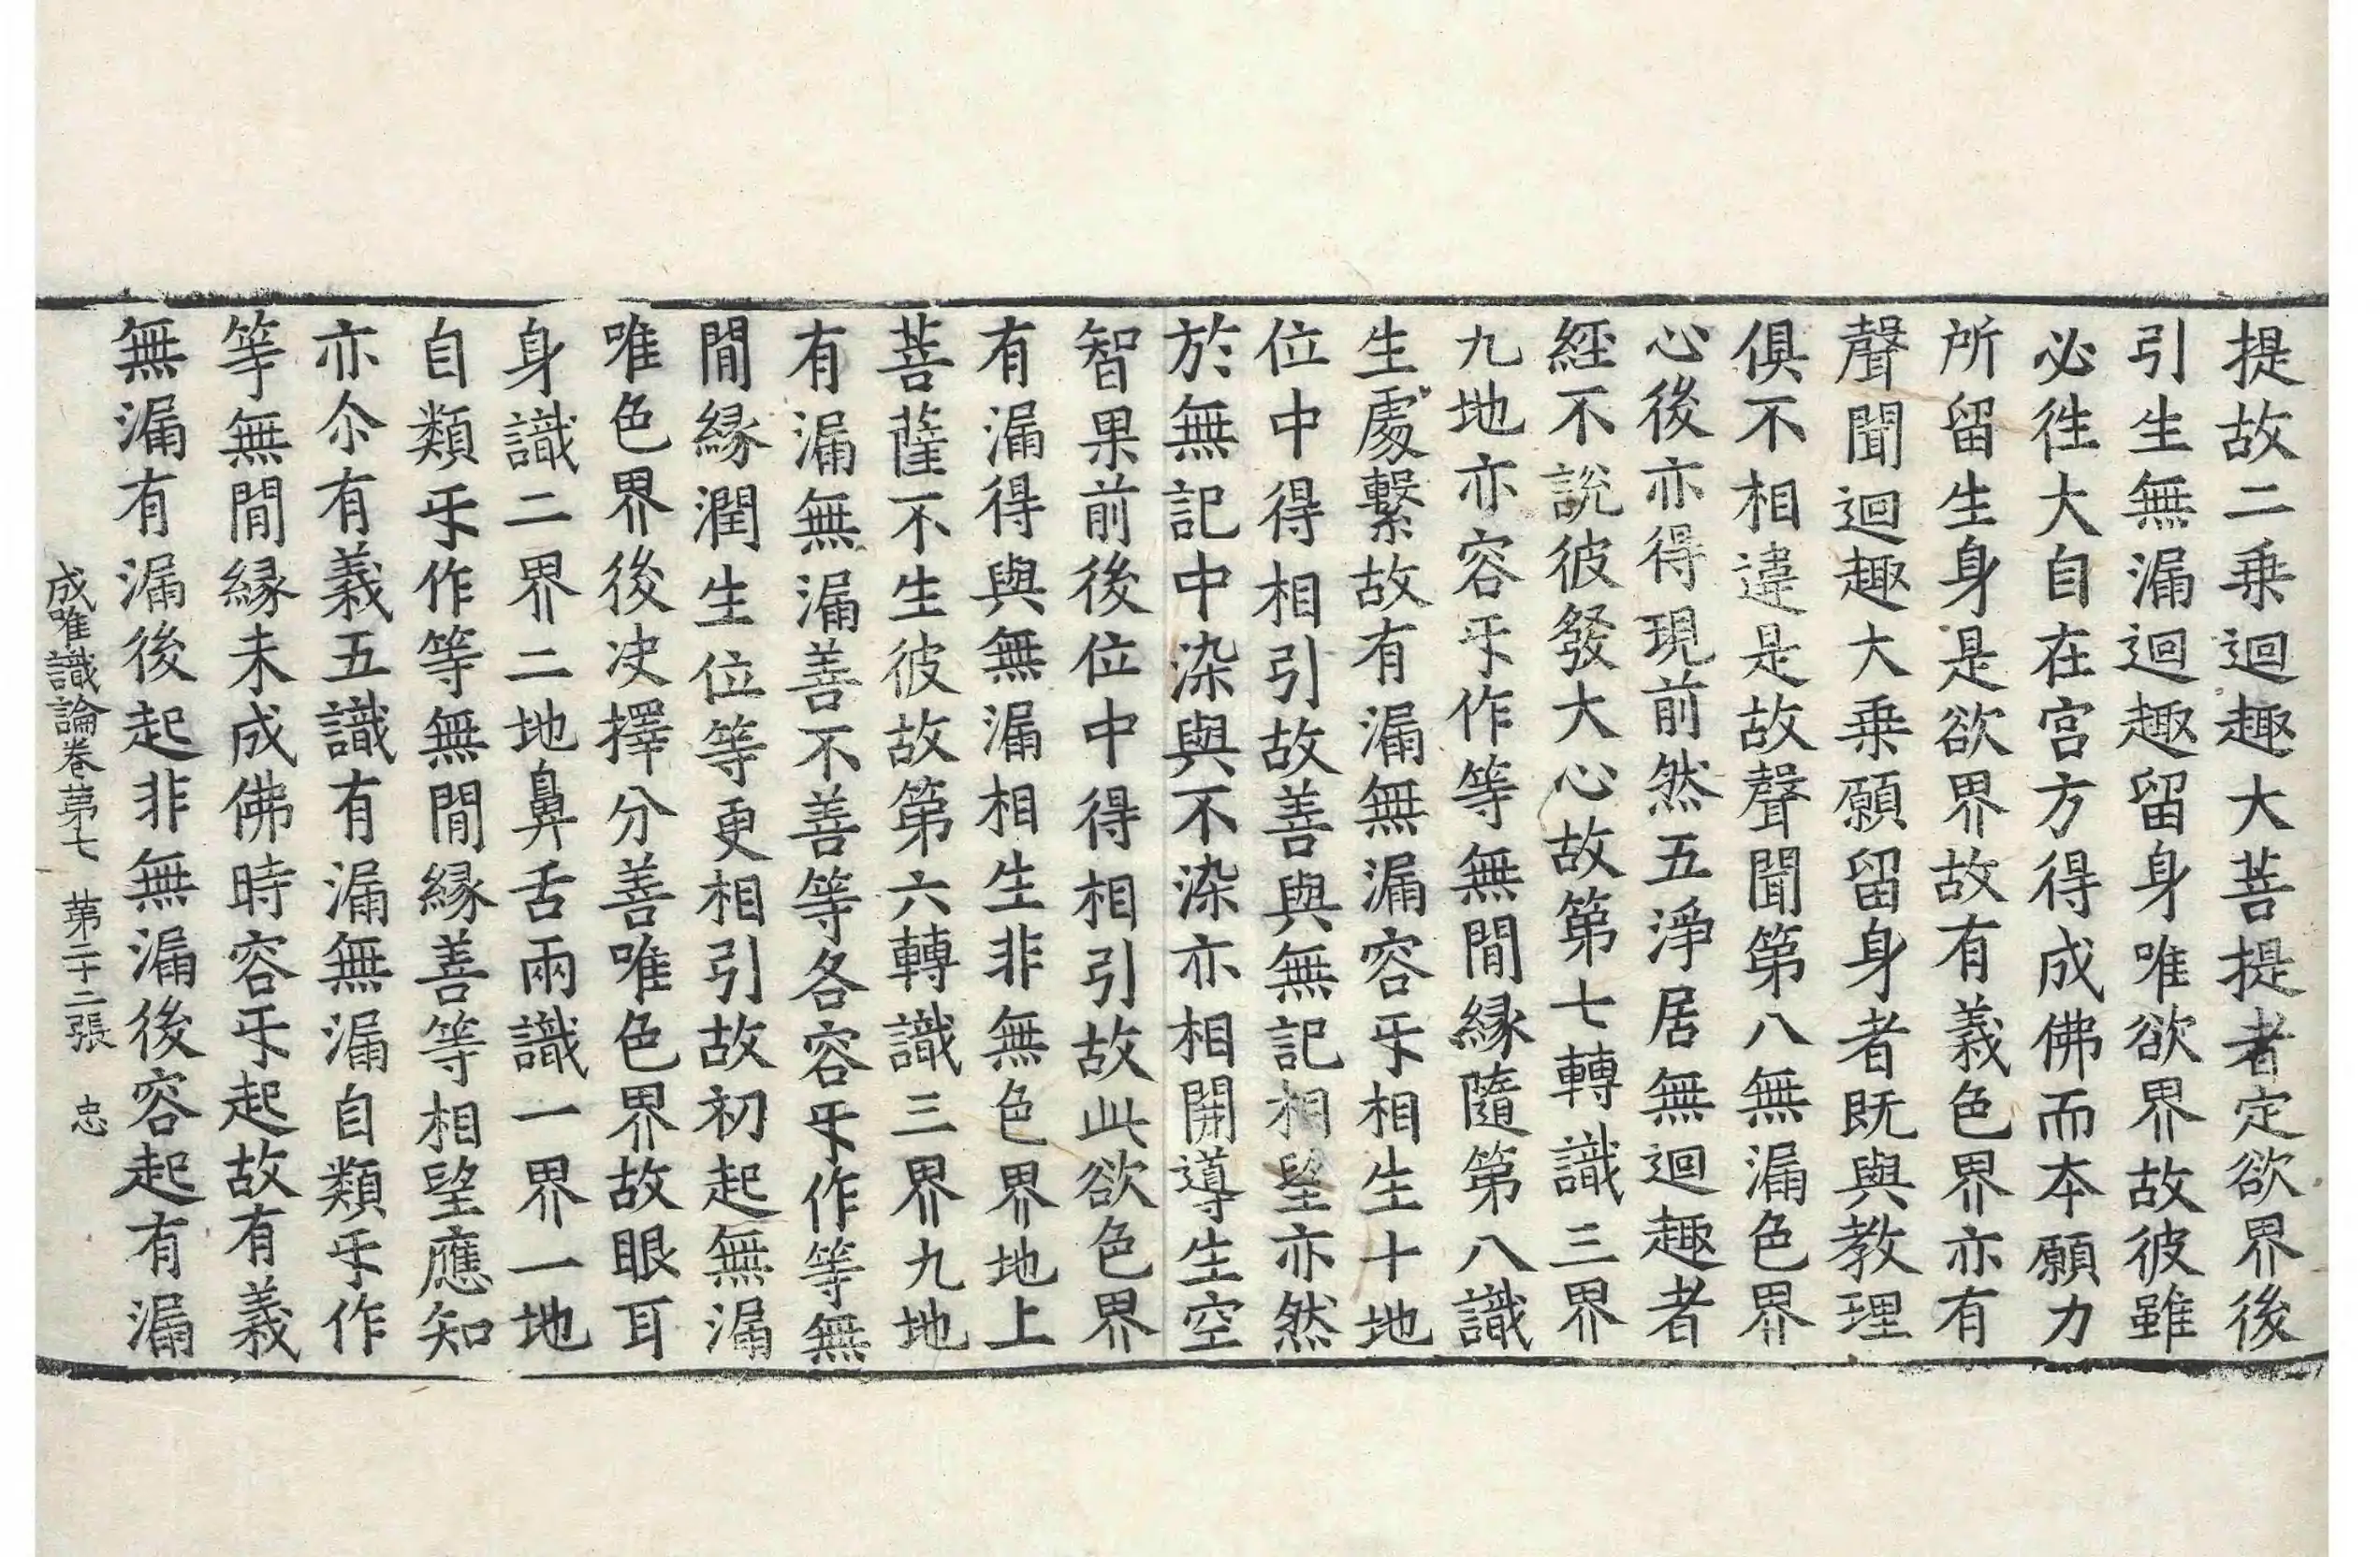 提故二乗迴趣大菩提者定欲界後
引生無漏迴趣留身唯欲界故彼雖
必徃大自在宫方得成佛而本願力
所留生身是欲界故有義色界亦有
聲聞迴趣大乗願留身者既與教理
俱不相違是故聲聞第八無漏色界
心後亦得現前然五淨居無迴趣者
經不說彼發大心故第七轉識三界
九地亦容㸦作等無間縁隨第八識
生處繫故有漏無漏容㸦相生十地
位中得相引故善與無記相望亦然
於無記中染與不染亦相開導生空
智果前後位中得相引故此欲色界
有漏得與無漏相生非無色界地上
菩薩不生彼故第六轉識三界九地
有漏無漏善不善等各容㸦作等無
間縁潤生位等更相引故初起無漏
唯色界後决擇分善唯色界故眼耳
身識二界二地鼻舌兩識一界一地
自類㸦作等無間縁善等相望應知
亦尒有義五識有漏無漏自類㸦作
等無間縁未成佛時容㸦起故有義
無漏有漏後起非無漏後容起有漏
成唯識論卷苐七 苐二十二張 忠